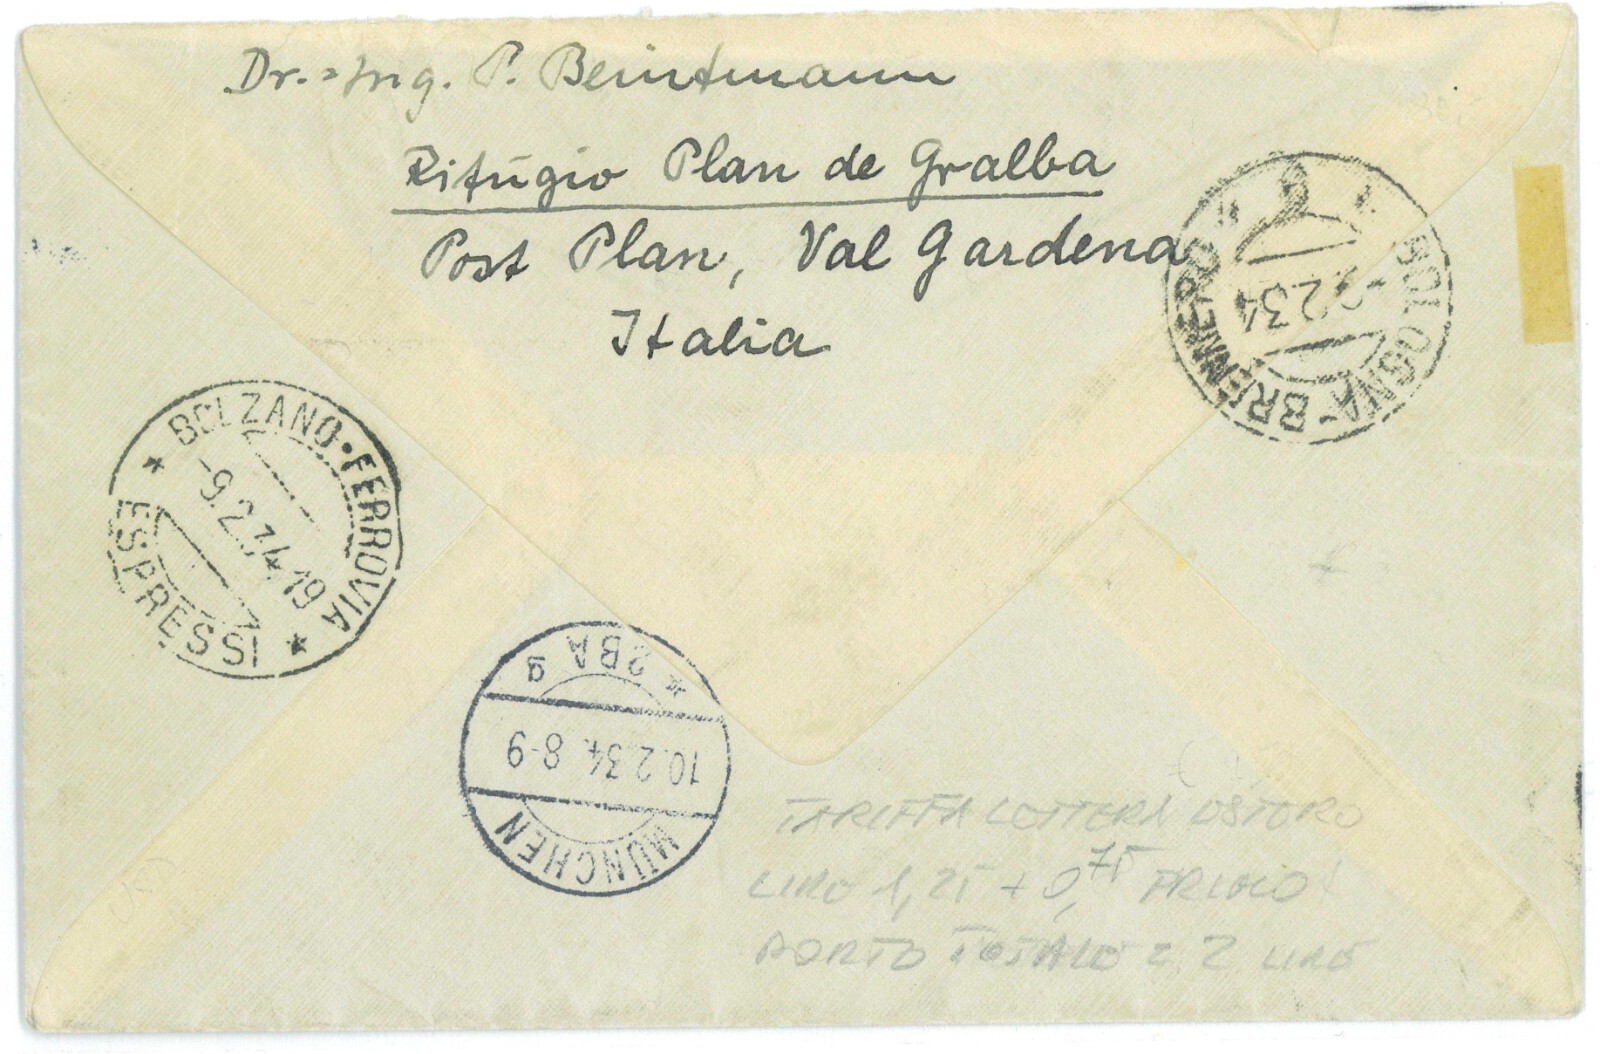 Dr.=Ing. P. Beintmann
Rifúgio Plan de Gralba
Post Plan, Val Gardena
Italia
BOLOGNA-BRENNERO
2
-9.2.34
BOLZANO·FERROVIA
-9.2.34.19
* ESPRESSI *
* 2BA g
10.2.34. 8-9
MÜNCHEN
TARIFFA LETTERA ESTERO
LIRE 1,25 + 0,75 PRIMO
PORTO TOTALE = 2 LIRE